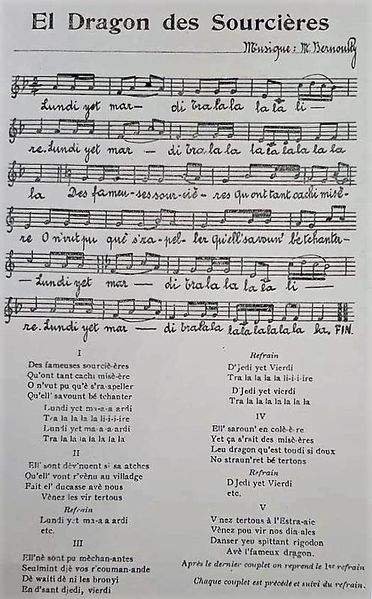 El Dragon des Sourcières
Musique: M. Bernouilly
Lundi yet mar — di tra la la la la li —
re. Lundi yet mar — di tra la la la la la la la la
la Des fameu-ses sour-ciè-res qu'ont tant cachi misè-
re O n'vut pu què s'ra-pel-ler qu'ell' savoun' bé tchanter-
- Lundi yet mar — di tra la la la la li —
re. Lundi yet mar — di tra la la la la la la la la. FIN.
I
Des fameuses sourciè-ères
Qu'ont tant cachi misè-ère
O n'vut pu qu'è s'rapeller
Qu'ell' savount bé tchanter
Lundi yet ma-a-a ardi
Tra la la la la li-i-i-ire
Lundi yet ma-a-a ardi
Tra la la la la la la la
II
Ell' sont dèv'nuent si sa atches
Qu'ell' vont r'vènu au villadge
Fait el' ducasse avè nous
Vènez les vir tertous
Refrain
Lundi yet ma-a a ardi
etc.
III
Ell'nè sont pu mèchan-antes
Seulmint djè vos r'couman-ande
Dè waiti dè ni les bronyi
En d'sant djedi, vierdi
Refrain
D'Jedi yet Vierdi
Tra la la la la li-i-i-ire
D'Jedi yet vierdi
Tra la la la la la la
IV
Ell' saroun' en colè-è-re
Yet ça s'rait des misè-ères
Leu dragon qu'est toudi si doux
No straun'ret bé tertons
Refrain
D Jedi yet Vierdi
etc.
V
V'nez tertous à l'Estra-aie
Vènez pou vir nos dia-ales
Danser yeu spittant rigodon
Avè l'fameux dragon.
Après le dernier couplet on reprend le 1er refrain.
Chaque couplet est précédé et suivi du refrain.